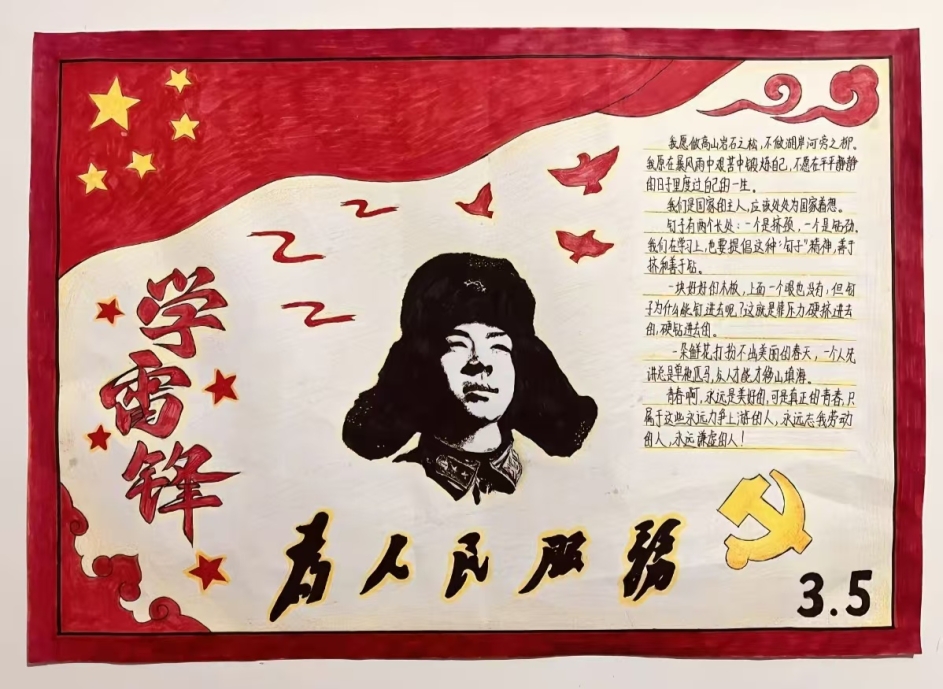 学雷锋
我愿做高山岩石之松,不做湖岸河旁之柳。
我愿在暴风雨中艰苦中锻炼自己,不愿在平平静静
的日子里度过自己的一生。
我们是国家的主人,应该处处为国家着想。
钉子有两个长处:一个是挤劲,一个是钻劲。
我们在学习上,也要提倡这种"钉子"精神,善于
挤和善于钻。
一块好好的木板,上面一个眼也没有,但钉
子为什么能钉进去呢?这就是靠压力硬挤进去
的,硬钻进去的。
一朵鲜花打扮不出美丽的春天,一个人先
进总是单枪匹马,众人才能移山填海。
青春啊,永远是美好的,可是真正的青春,只
属于这些永远力争上游的人,永远忘我劳动
的人,永远谦虚的人!
为人民服务
3.5